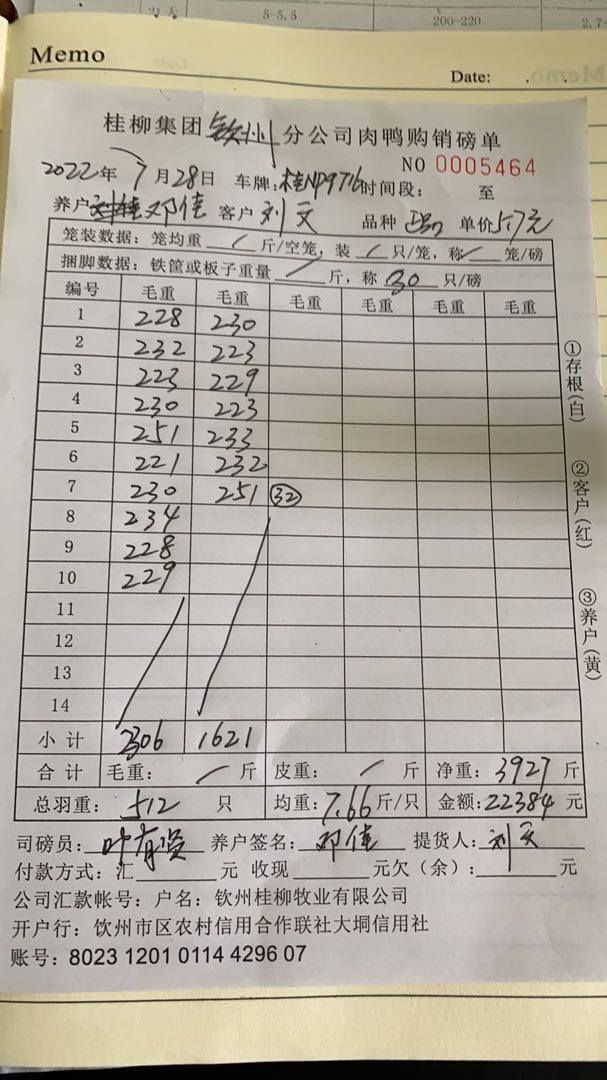 21天 5-5.5 200-220 2.7
Memo
Date: . .
桂柳集团钦州分公司肉鸭购销磅单
NO 0005464
2022年7月28日 车牌:桂NP9716时间段: 至
养户 邓佳 客户 刘文 品种 单价5.7元
笼装数据:笼均重 / 斤/空笼,装 / 只/笼,称 / 笼/磅
捆脚数据:铁筐或板子重量 / 斤,称 30 只/磅
编号 毛重 毛重 毛重 毛重 毛重 毛重
1 228 230
2 232 223
3 223 229
4 230 223
5 251 233
6 221 232
7 230 251 ㉜
8 234
9 228
10 229
11
12
13
14
小计 2306 1621
合计 毛重: / 斤 皮重: / 斤 净重:3927斤
总羽重:512 只 均重:7.66斤/只 金额:22384元
司磅员: 叶 养户签名: 邓佳 提货人: 刘文
付款方式:汇 元 收现 元欠(余): 元
公司汇款帐号:户名:钦州桂柳牧业有限公司
开户行:钦州市区农村信用合作联社大垌信用社
账号:8023 1201 0114 4296 07
①存根(白)
②客户(红)
③养户(黄)